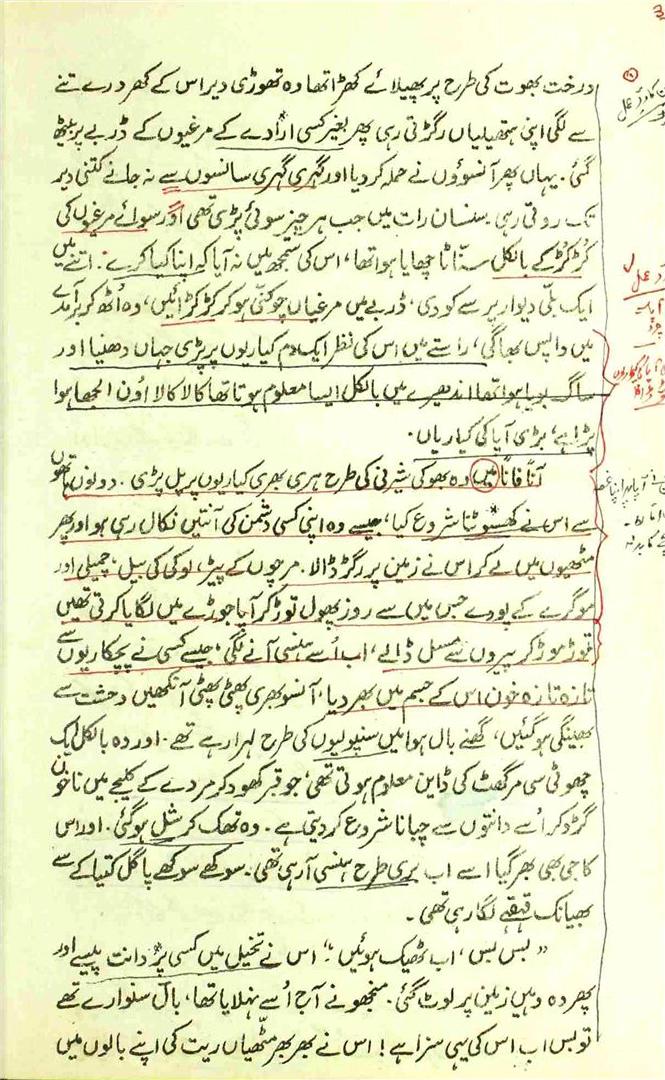 درخت بھوت کی طرح پر پھیلائے کھڑا تھا وہ تھوڑی دیر اس کے کھردرے تنے
سے لگی اپنی ہتھیلیاں رگڑتی رہی پھر بغیر کسی ارادے کے مرغیوں کے ڈربے پر بیٹھ
گئی۔ یہاں پھر آنسوؤں نے حملہ کر دیا اور گہری گہری سانسوں سے نہ جانے کتنی دیر
تک روتی رہی۔ سنسان رات میں جب ہر چیز سوئی پڑی تھی اور سوائے مرغیوں کی
کُڑکُڑ کے بالکل سنّاٹا چھایا ہوا تھا، اس کی سمجھ میں نہ آیا کہ اپنا کیا کرے۔ اتنے میں
ایک بلّی دیوار پر سے کودی، ڈربے میں مرغیاں چوکنّی ہو کر کڑکڑائیں، وہ اُٹھ کر برآمدے
میں واپس بھاگی، راستے میں اس کی نظر ایک دم کیاریوں پر پڑی جہاں دھنیا اور
ساگ بویا ہوا تھا اندھیرے میں بالکل ایسا معلوم ہوتا تھا کالا کالا اون الجھا ہوا
پڑا ہے، بڑی آپا کی کیاریاں۔
آناً فاناً میں وہ بھوکی شیرنی کی طرح ہری بھری کیاریوں پر پل پڑی۔ دونوں ہاتھوں
سے اس نے کھسوٹنا شروع کیا، جیسے وہ اپنی کسی دشمن کی آنتیں نکال رہی ہو اور پھر
مٹھیوں میں لے کر اس نے زمین پر رگڑ ڈالا۔ مرچوں کے پیڑ، لوکی کی بیل، چمیلی اور
موگرے کے پودے جس میں سے روز پھول توڑ کر آپا جوڑے میں لگایا کرتی تھیں
توڑ موڑ کر پیروں سے مسل ڈالے، اب اُسے ہنسی آنے لگی، جیسے کسی نے پچکاریوں سے
تازہ تازہ خون اس کے جسم میں بھر دیا، آنسو بھری پھٹی پھٹی آنکھیں دحشت سے
بھینگی ہو گئیں، گھنے بال ہوا میں سنپولیوں کی طرح لہرا رہے تھے۔ اور وہ بالکل ایک
چھوٹی سی مرگھٹ کی ڈاین معلوم ہوتی تھی، جو قبر کھود کر مردے کے کلیجے میں ناخون
گڑو کر اُسے دانتوں سے چبانا شروع کر دیتی ہے۔ وہ تھک کر شل ہو گئی۔ اور اس
کا جی بھی بھر گیا اسے اب بری طرح ہنسی آ رہی تھی۔ سوکھے سوکھے پاگل کتیا کے سے
بھیانک قہقہے لگا رہی تھی۔
”بس بس، اب ٹھیک ہوئیں۔“ اس نے تخیل میں کسی پر دانت پیسے اور
پھر وہ وہیں زمین پر لوٹ گئی۔ منجھو نے آج اُسے نہلایا تھا، بال سنوارے تھے
تو بس اب اس کی یہی سزا ہے! اس نے بھر بھر مٹھیاں ریت کی اپنے بالوں میں